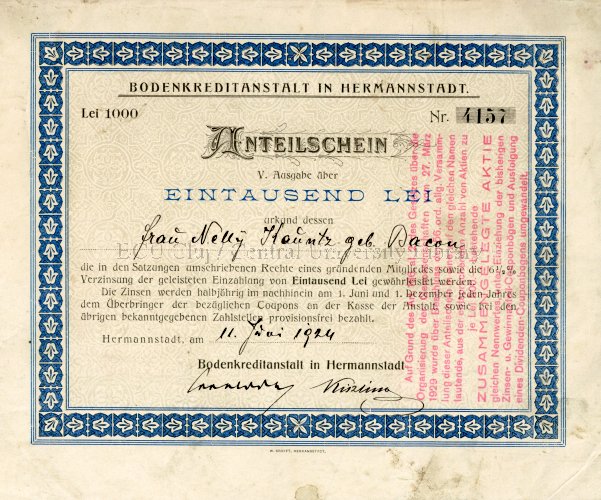 BODENKREDITANSTALT IN HERMANNSTADT.
Lei 1000
Nr. 4157
ANTEILSCHEIN
V. Ausgabe über
EINTAUSEND LEI
urkund dessen
Frau Nelly Kaunitz geb. Bacon
die in den Satzungen umschriebenen Rechte eines gründenden Mitgliedes sowie die 6½%
Verzinsung der geleisteten Einzahlung von Eintausend Lei gewährleistet werden.
Die Zinsen werden halbjährig im nachhinein am 1. Juni und 1. Dezember jeden Jahres
dem Überbringer der bezüglichen Coupons an der Kasse der Anstalt, sowie bei den
übrigen bekanntgegebenen Zahlstellen provisionsfrei bezahlt.
Hermannstadt, am 11. Juni 1924
Bodenkreditanstalt in Hermannstadt
Auf Grund des Gesetzes über die
Organisierung der 27. März
1929 wurde über allg. Versamm-
lung dieser Anteil den gleichen Namen
lautende, aus der Anzahl von Aktien zu
je
ZUSAMMENGELEGTE AKTIE
gleichen Nennwertes unter Einziehung der bisherigen
Zinsen- u. Gewinn-Couponbögen und Ausfolgung
eines Dividenden-Couponbogens umgewandelt.
BCU Cluj / Central University Library
W. KRAFFT, HERMANNSTADT.